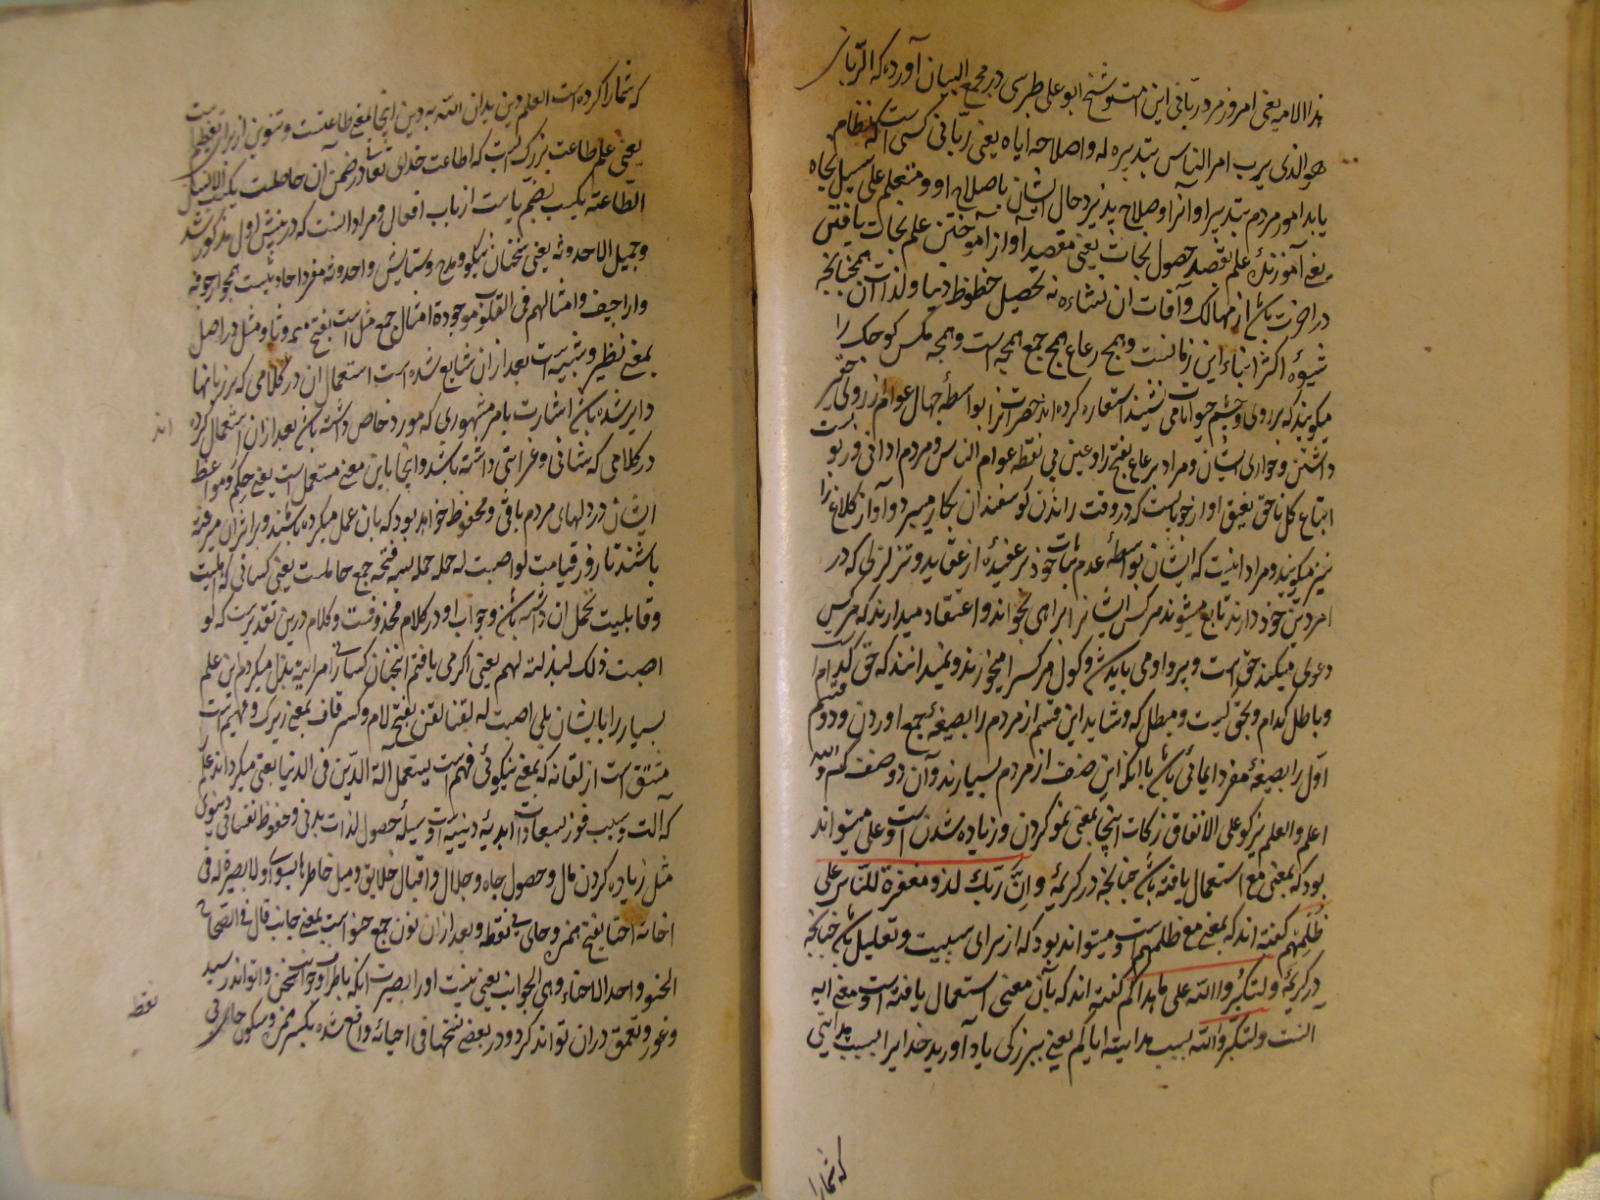 هذا الامه یعنی امروز مرد ربانی این امت و شیخ ابو علی طبرسی در مجمع البیان آورده که الربانی
هو الذی یرب امر الناس بتدبیره له و اصلاحه ایاه یعنی ربانی کسی است که نظام
یابد امور مردم بتدبیر او و آنرا و صلاح پذیرد حال ایشان باصلاح او و متعلم علی سبیل نجاه
یعنی آموزنده علم بقصد حصول نجات یعنی مقصد او از آموختن علم نجات یافتن
در آخرت باشد از مهالک و آفات آن نشاءه نه تحصیل حظوظ دنیا و لذات آن همچنانچه
شیوه اکثر ابناء این زمانست و همج رعاع همج جمع همجه است و همجه مکس کوچک را
میکویند که بر روی و چشم حیوانات می نشیند استعاره کرده اند حضرت آنرا بواسطه جهال عوام از روی حقیر
داشتن و خواری ایشان و مراد برعاع بفتح را و عین بی نقطه عوام الناس و مردم ادانی و
اتباع کل ناعق نعیق آوازخوانیست که در وقت راندن کوسفندان بکار میبرد و آواز کلاغ را
نیز میکویند و مراد اینست که ایشان بواسطه عدم ثبات خود بر عقیده از عقاید و تزلزلی که در
امر دین خود دارند تابع میشوند هر کس ایشانرا براهی بخواند و اعتقاد میدارند که هر کس
دعوی میکند حق است و پیرو او می باید شد و کول هر کسرا میخورند و نمیدانند که حق کدام
و باطل کدام و محق کیست و مبطل که و شاید این قسم از مردم را بصیغه جمع آوردن و دو قسم
اول را بصیغه مفرد ایمائی باشد بانکه این صنف از مردم بسیارند و آن دو صنف کم والله
اعلم و العلم یزکو علی الانفاق زکات اینجا بمعنی نمو کردن و زیاده شدن است و علی میتواند
بود که بمعنی مع استعمال یافته باشد چنانچه در کریمه و ان ربک لذو مغفرة للناس علی
ظلمهم کفته اند که بمعنی مع ظلمهم است و میتواند بود که از برای سببیت و تعلیل باشد چنانچه
در کریمه و لتکبروا الله علی ما هداکم کفته اند که بآن معنی استعمال یافته است و معنی آیه
آنست و لتکبروا الله بسبب هدایته ایاکم یعنی ببزرکی یاد آورید خدایرا بسبب هدایتی
که شما را
که شما را کرده است العلم دین یدان الله به دین اینجا بمعنی طاعتست و تنوین از برای تعظیم است
یعنی علم طاعت بزرک است که اطاعت خدای تعالی در ضمن آن حاصلست یکسب الانسان
الطاعة یکسب بضم یاست از باب افعال و مراد آنست که در پیش اول مذکور شد
و جمیل الاحدوثه یعنی سخنان نیکو و مدح و ستایش و احدوثه مفرد احادیث است همچو ارجوفه
و اراجیف و امثالهم فی القلوب موجودة امثال جمع مثل است بفتح میم و ثا و مثل در اصل
بمعنی نظیر و شبیه است بعد از آن شایع شده است استعمال آن در کلامی که بر زبانها
دایر شده باشد اشارت بامر مشهوری که مورد خاص داشته باشد بعد از آن استعمال کرده
اند
در کلامی که شانی و غرابتی داشته باشد و اینجا باین معنی مستعمل است یعنی حکم و مواعظ
ایشان در دلهای مردم باقی و محفوظ خواهد بود که بآن عمل میکرده باشند و بر اثر آن میرفته
باشند تا روز قیامت لو اصبت له حمله حمله بسه فتحه جمع حاملست یعنی کسانی که اهلیت
و قابلیت تحمل آن داشته باشند و جواب لو در کلام محذوفست و کلام درین تقدیرست که لو
اصبت ذلک لبذلته لهم یعنی اکر می یافتم آنچنان کسانی را هر آینه بذل میکردم این علم
بسیار را بایشان بلی اصبت له لقنا لقن بفتح لام و کسر قاف بمعنی زیرک و فهیم است
مشتق است از لقانه که بمعنی نیکوئی فهم است یستعمل آلة الدین فی الدنیا یعنی میکرداند علم
که آلت و سبب فوز بسعادات ابدیه دینیه است وسیله حصول لذات بدنی و حظوظ نفسانی دنیوی
مثل زیاده کردن مال و حصول جاه و جلال و اقبال خلایق و میل خاطرها بسوی او لا بصیرة له فی
احنائه احنا بفتح همزه و حای بی نقطه و بعد از آن نون جمع حنو است بمعنی جانب قال فی الصحاح
الحنو واحد الاحناء وهی الجوانب یعنی نیست او را بصیرت انکه باطراف و جوانب سخن واتواند رسید
و غور و تعمق در آن تواند کرد و در بعضی نسخها فی احیائه واقع شده بکسر همزه و سکون حای بی
نقطه